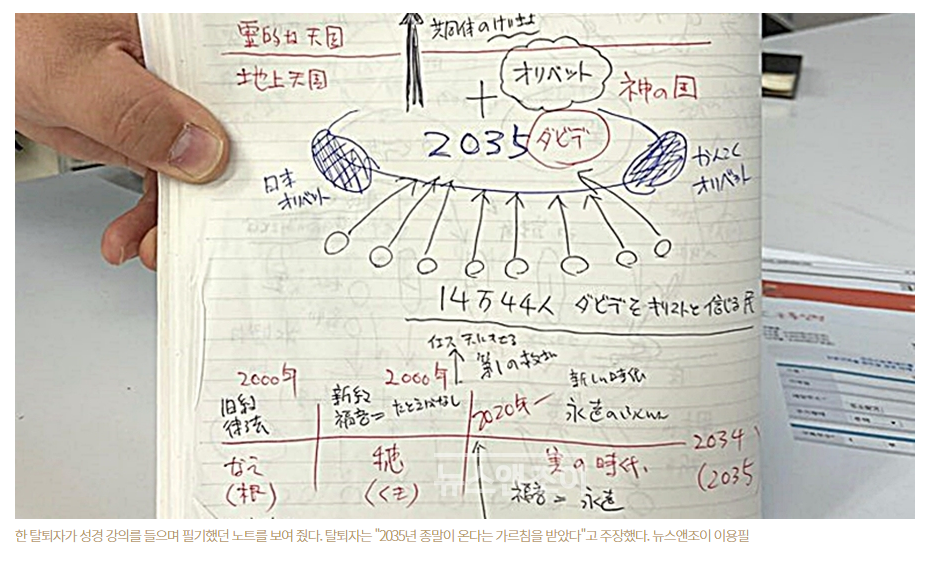 霊的な天国
共同体の
地上天国
オリベット
神の国
+
2035 ダビデ
日本
オリベット
かんこく
オリベット
14万44人 ダビデをキリストと信じる民
イエス
第1の
2000年
2000年
新しい時代
旧約
律法
新約
福音= たとえばなし
2020年ー
永遠の
2034
(2035
なえ
(根)
穂
(くき)
実の時代
福音= 永遠
뉴스앤조이
한 탈퇴자가 성경 강의를 들으며 필기했던 노트를 보여 줬다. 탈퇴자는 "2035년 종말이 온다는 가르침을 받았다"고 주장했다. 뉴스앤조이 이용필